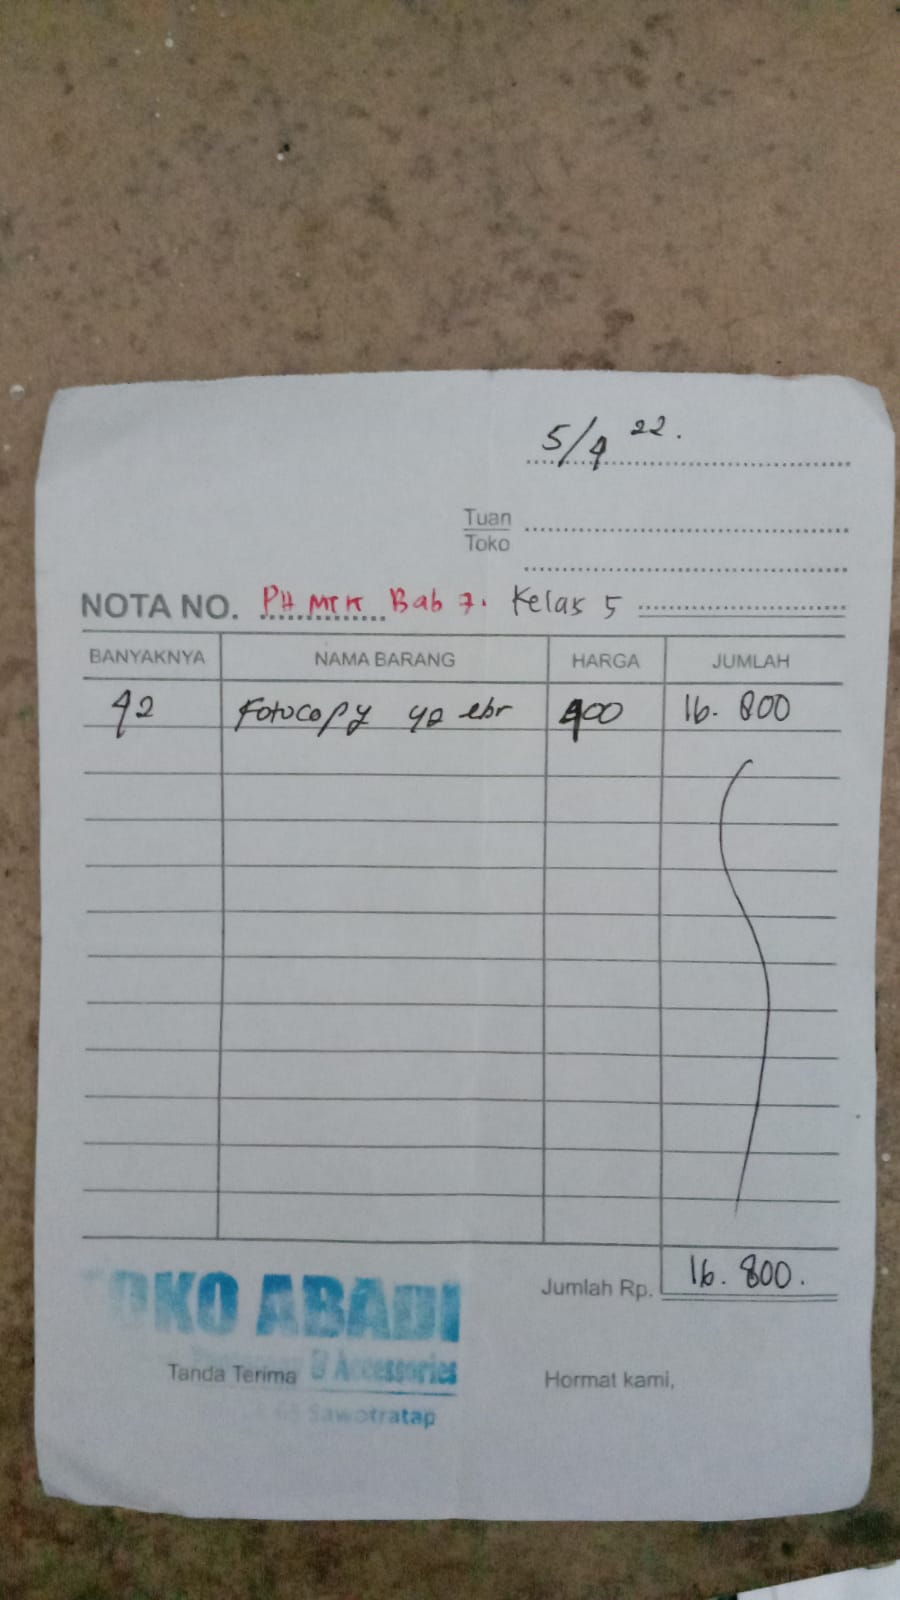 5/4 22.
Tuan
Toko
NOTA NO. PH MTK Bab 7. Kelas 5
BANYAKNYA NAMA BARANG HARGA JUMLAH
42 Fotocopy 42 lbr 400 16.800
Jumlah Rp. 16.800.
TOKO ABADI
& Accessories
Tanda Terima Hormat kami,
Sawotratap